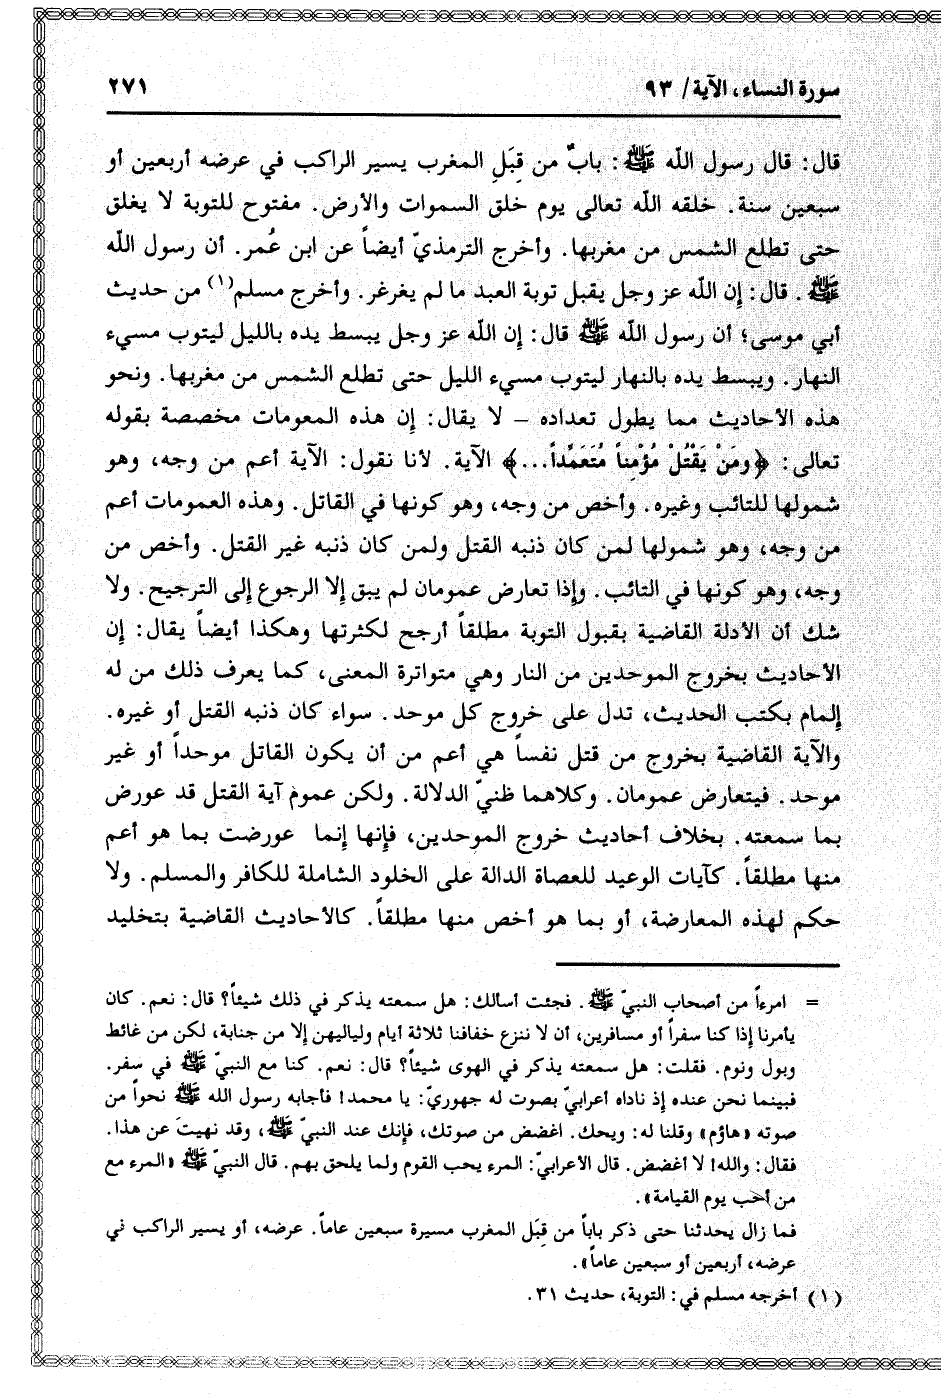 سورة النساء، الآية/ ٩٣
٢٧١
قال: قال رسول اللّه ﷺ: بابٌ من قِبَلِ المغرب يسير الراكب في عرضه أربعين أو
سبعين سنة. خلقه اللّه تعالى يوم خلق السموات والأرض. مفتوح للتوبة لا يغلق
حتى تطلع الشمس من مغربها. وأخرج الترمذيّ أيضاً عن ابن عُمر. أن رسول اللّه
ﷺ. قال: إن اللّه عز وجل يقبل توبة العبد ما لم يغرغر. وأخرج مسلم(١) من حديث
أبي موسى؛ أن رسول اللّه ﷺ قال: إن اللّه عز وجل يبسط يده بالليل ليتوب مسيء
النهار. ويبسط يده بالنهار ليتوب مسيء الليل حتى تطلع الشمس من مغربها. ونحو
هذه الأحاديث مما يطول تعداده – لا يقال: إن هذه المعومات مخصصة بقوله
تعالى: ﴿ومَنْ يَقْتُلْ مُؤْمِناً مُتَعَمِّداً...﴾ الآية. لأنا نقول: الآية أعم من وجه، وهو
شمولها للتائب وغيره. وأخص من وجه، وهو كونها في القاتل. وهذه العمومات أعم
من وجه، وهو شمولها لمن كان ذنبه القتل ولمن كان ذنبه غير القتل. وأخص من
وجه، وهو كونها في التائب. وإذا تعارض عمومان لم يبق إلا الرجوع إلى الترجيح. ولا
شك أن الأدلة القاضية بقبول التوبة مطلقاً أرجح لكثرتها وهكذا أيضاً يقال: إن
الأحاديث بخروج الموحدين من النار وهي متواترة المعنى، كما يعرف ذلك من له
إلمام بكتب الحديث، تدل على خروج كل موحد. سواء كان ذنبه القتل أو غيره.
والآية القاضية بخروج من قتل نفساً هي أعم من أن يكون القاتل موحداً أو غير
موحد. فيتعارض عمومان. وكلاهما ظنيّ الدلالة. ولكن عموم آية القتل قد عورض
بما سمعته. بخلاف أحاديث خروج الموحدين، فإنها إنما عورضت بما هو أعم
منها مطلقاً. كآيات الوعيد للعصاة الدالة على الخلود الشاملة للكافر والمسلم. ولا
حكم لهذه المعارضة، أو بما هو أخص منها مطلقاً. كالأحاديث القاضية بتخليد
= امرءاً من أصحاب النبيّ ﷺ. فجئت أسألك: هل سمعته يذكر في ذلك شيئاً؟ قال: نعم. كان
يأمرنا إذا كنا سفراً أو مسافرين، أن لا ننزع خفافنا ثلاثة أيام ولياليهن إلا من جنابة، لكن من غائط
وبول ونوم. فقلت: هل سمعته يذكر في الهوى شيئاً؟ قال: نعم. كنا مع النبيّ ﷺ في سفر.
فبينما نحن عنده إذ ناداه أعرابيّ بصوت له جهوريّ: يا محمد! فأجابه رسول الله ﷺ نحواً من
صوته «هاؤم» وقلنا له: ويحك. اغضض من صوتك، فإنك عند النبيّ ﷺ، وقد نهيتَ عن هذا.
فقال: والله! لا أغضض. قال الأعرابيّ: المرء يحب القوم ولما يلحق بهم. قال النبيّ ﷺ «المرء مع
من أحب يوم القيامة».
فما زال يحدثنا حتى ذكر باباً من قِبَل المغرب مسيرة سبعين عاماً. عرضه، أو يسير الراكب ني
عرضه، أربعين أو سبعين عاماً».
(١) أخرجه مسلم في: التوبة، حديث ٣١.